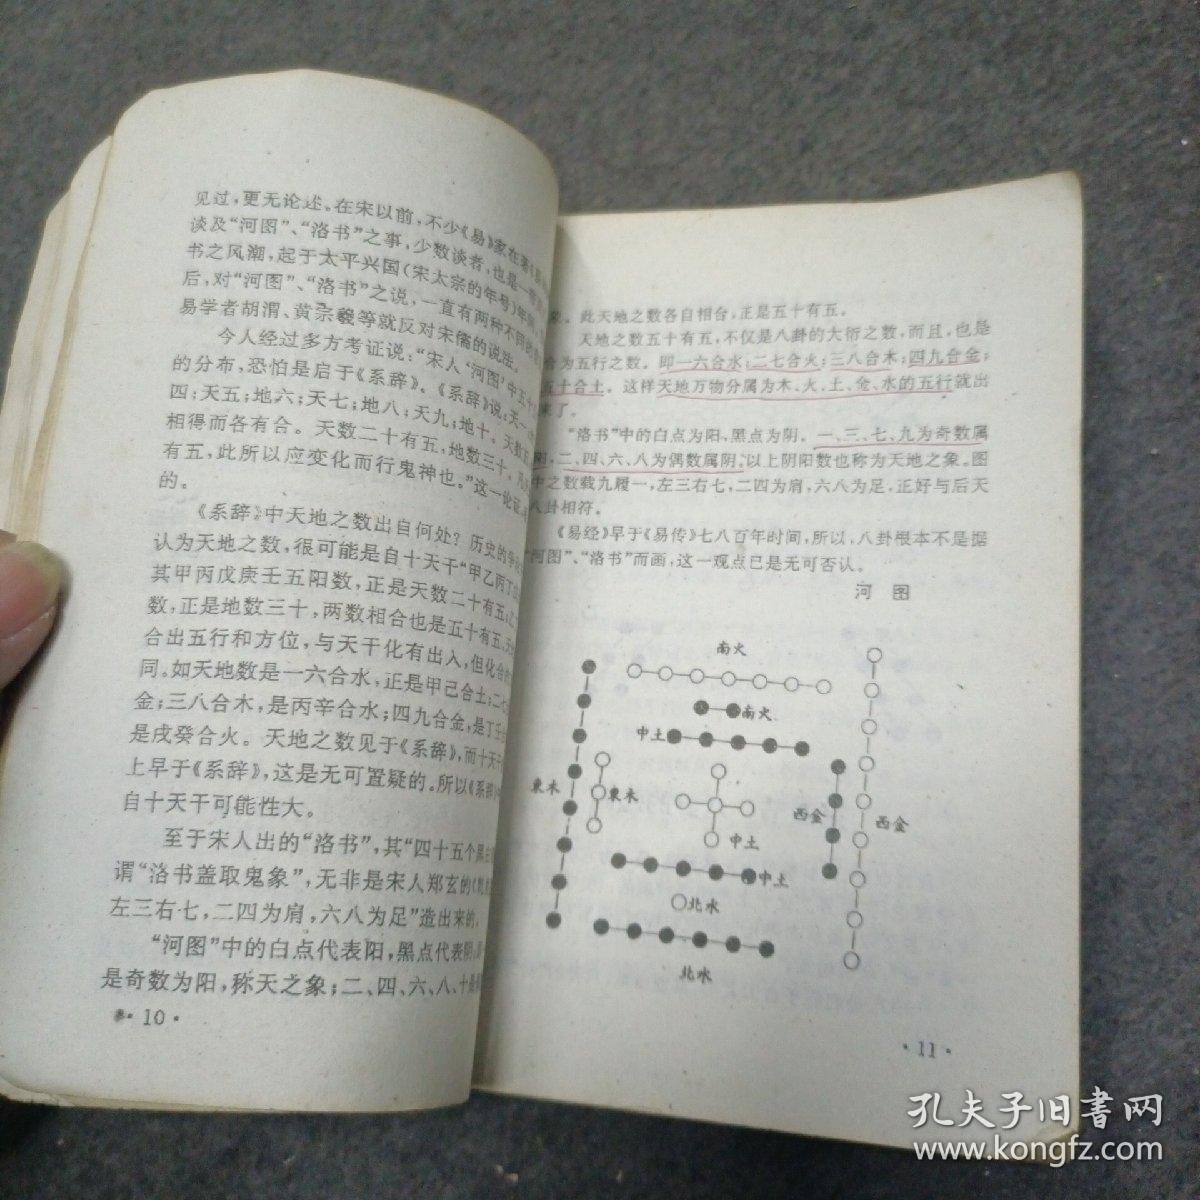 见过，更无论述。在宋以前，不少《易》家在著《
谈及“河图”、“洛书”之事，少数谈者，也是一
书之风潮，起于太平兴国（宋太宗的年号）年
后，对“河图”、“洛书”之说，一直有两种不同的
易学者胡渭、黄宗羲等就反对宋儒的说法。
今人经过多方考证说：“宋人‘河图’中五十
的分布，恐怕是启于《系辞》。《系辞》说：天一
四；天五；地六；天七；地八；天九；地十。天数五
相得而各有合。天数二十有五，地数三十，凡
有五，此所以应变化而行鬼神也。”这一论证，
的。
《系辞》中天地之数出自何处？历史的争
认为天地之数，很可能是自十天干“甲乙丙丁
其甲丙戊庚壬五阳数，正是天数二十有五；乙
数，正是地数三十，两数相合也是五十有五。天
合出五行和方位，与天干化有出入，但化合的
同。如天地数是一六合水，正是甲己合土；二七
金；三八合木，是丙辛合水；四九合金，是丁壬
是戌癸合火。天地之数见于《系辞》，而十天干
上早于《系辞》，这是无可置疑的。所以《系辞》
自十天干可能性大。
至于宋人出的“洛书”，其“四十五个黑
谓“洛书盖取龟象”，无非是宋人郑玄的《
左三右七，二四为肩，六八为足”造出来的。
“河图”中的白点代表阳，黑点代表阴，
是奇数为阳，称天之象；二、四、六、八、十是
·10·
象。此天地之数各自相合，正是五十有五。
天地之数五十有五，不仅是八卦的大衍之数，而且，也是
合为五行之数。即一六合水；二七合火；三八合木；四九合金；
五十合土。这样天地万物分属为木、火、土、金、水的五行就出
来了。
“洛书”中的白点为阳，黑点为阴。一、三、七、九为奇数属
阳，二、四、六、八为偶数属阴。以上阴阳数也称为天地之象。图
中之数载九履一，左三右七，二四为肩，六八为足，正好与后天
八卦相符。
《易经》早于《易传》七八百年时间，所以，八卦根本不是据
“河图”、“洛书”而画，这一观点已是无可否认。
河 图
南火
南火
中土
東木
東木
西金
西金
中土
中土
北水
北水
·11·
孔夫子旧書网
www.kongfz.com